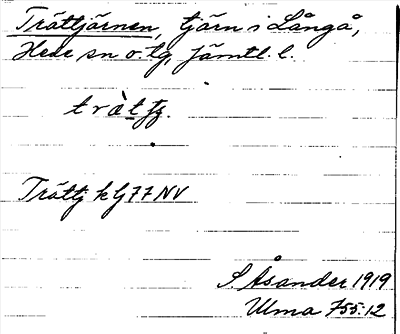 Trättjärnen, tjärn i Långå,
Hede sn o. tg, Jämtl. l.
Trättj k G77 NV
S Åsander 1919
Ulma 755:12